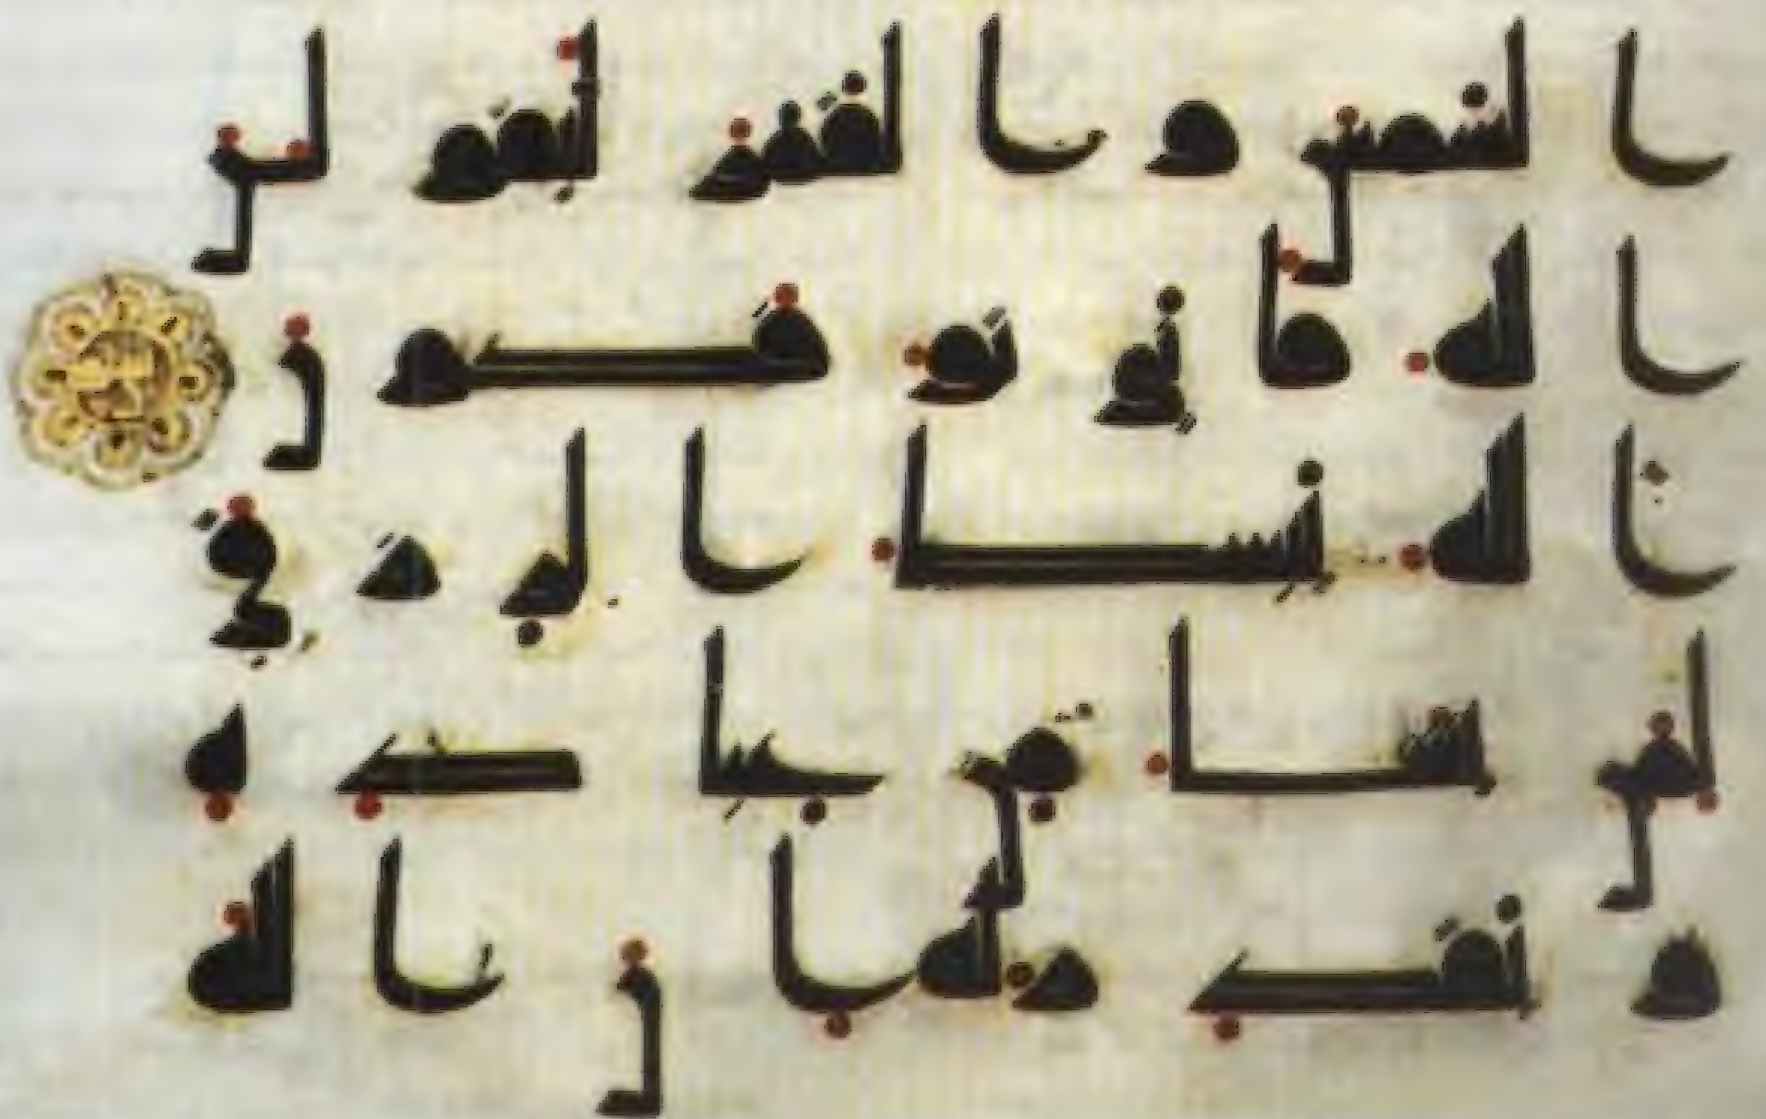 الشمس والقمر ليقولن
الله فانى يوفكون
الله يبسط الرزق
لمن يشا من عباده
ويقدر له ان الله